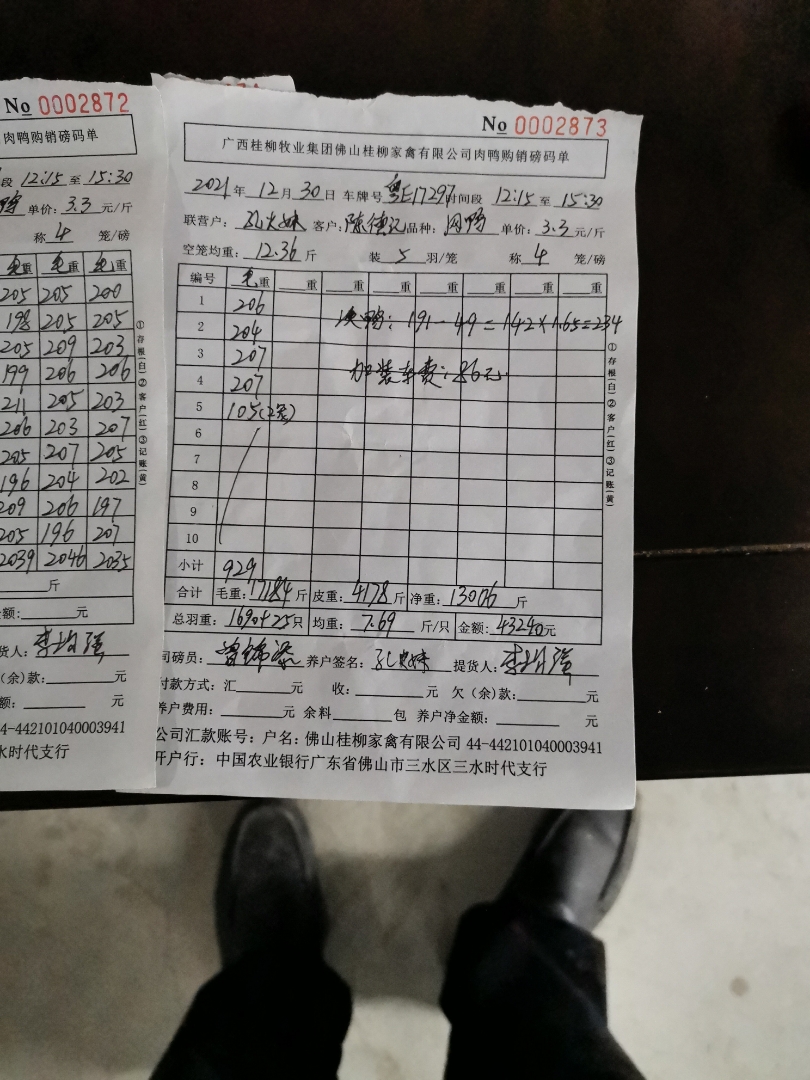 No 0002872
肉鸭购销磅码单
段 12:15 至 15:30
单价: 3.3 元/斤
称 4 笼/磅
毛重 毛重 毛重
205 205 200
198 205 205
205 209 203
199 206 206
211 205 203
206 203 207
205 207 205
196 204 202
209 206 197
205 196 207
2039 2046 2035
斤
金额: 元
货人: 李均强
(余)款: 元
额: 元
4-442101040003941
水时代支行
①存根(白)②客户(红)③记账(黄)
No 0002873
广西桂柳牧业集团佛山桂柳家禽有限公司肉鸭购销磅码单
2021 年 12 月 30 日 车牌号 粤E17297 时间段 12:15 至 15:30
联营户: 孔火妹 客户: 陈德记 品种: 肉鸭 单价: 3.3 元/斤
空笼均重: 12.36 斤 装 5 羽/笼 称 4 笼/磅
编号 毛重 重 重 重 重 重 重
1 206
次鸭: 191-49=142×1.65=234
2 204
3 207
加装车费: 86元.
4 207
5 105(2笼)
6
7
8
9
10
小计 929
合计 毛重: 17184 斤 皮重: 4178 斤 净重: 13006 斤
总羽重: 1690+25 只 均重: 7.69 斤/只 金额: 43240 元
司磅员: 养户签名: 孔火妹 提货人: 李均强
付款方式: 汇 元 收: 元 欠(余)款: 元
养户费用: 元 余料 包 养户净金额: 元
公司汇款账号: 户名: 佛山桂柳家禽有限公司 44-442101040003941
开户行: 中国农业银行广东省佛山市三水区三水时代支行
①存根(白)②客户(红)③记账(黄)